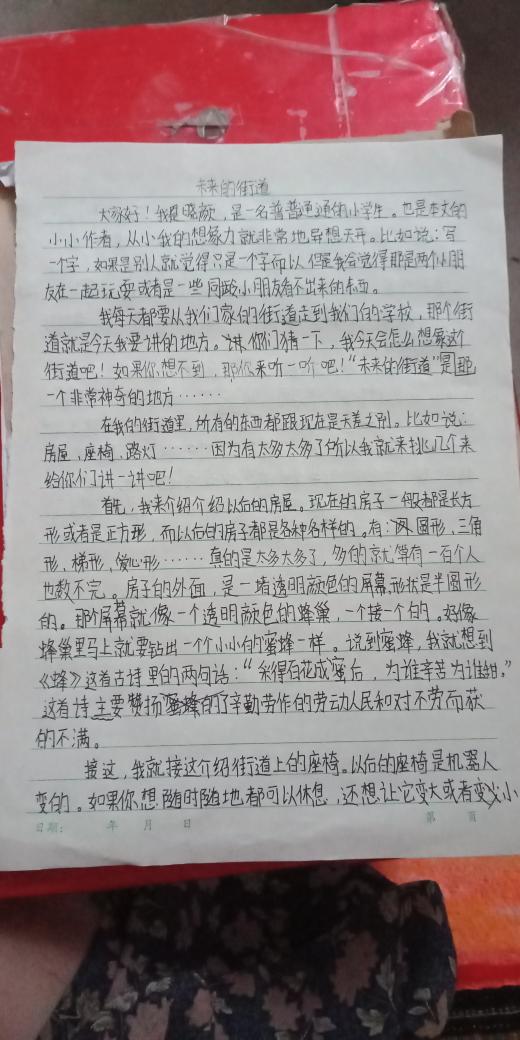 未来的街道
大家好！我是晓颜，是一名普普通通的小学生。也是本文的
小小作者，从小我的想象力就非常地异想天开。比如说：写
一个字，如果是别人就觉得只是一个字而以但是我会觉得那是两个小朋
友在一起玩耍或者是一些同龄小朋友看不出来的东西。
我每天都要从我们家的街道走到我们的学校，那个街
道就是今天我要讲的地方。你们猜一下，我今天会怎么想象这个
街道吧！如果你想不到，那你来听一听吧！“未来的街道”是那
一个非常神奇的地方……
在我的街道里，所有的东西都跟现在是天差之别。比如说：
房屋、座椅、路灯……因为有太多太多了所以我就来挑几个来
给你们讲一讲吧！
首先，我来介绍介绍以后的房屋。现在的房子一般都是长方
形或者是正方形，而以后的房子都是各种各样的。有：圆形、三角
形、梯形、爱心形……真的是太多太多了，多的就算有一百个人
也数不完。房子的外面，是一堵透明颜色的屏幕，形状是半圆形
的。那个屏幕就像一个透明颜色的蜂巢，一个接一个的。好像
蜂巢里马上就要钻出一个个小小的蜜蜂一样。说到蜜蜂，我就想到
《蜂》这首古诗里的两句话：“采得百花成蜜后，为谁辛苦为谁甜。”
这首诗主要赞扬了辛勤劳作的劳动人民和对不劳而获
的不满。
接这，我就接这介绍街道上的座椅。以后的座椅是机器人
变的。如果你想随时随地都可以休息，还想让它变大或者变小
日期： 年 月 日 第 页